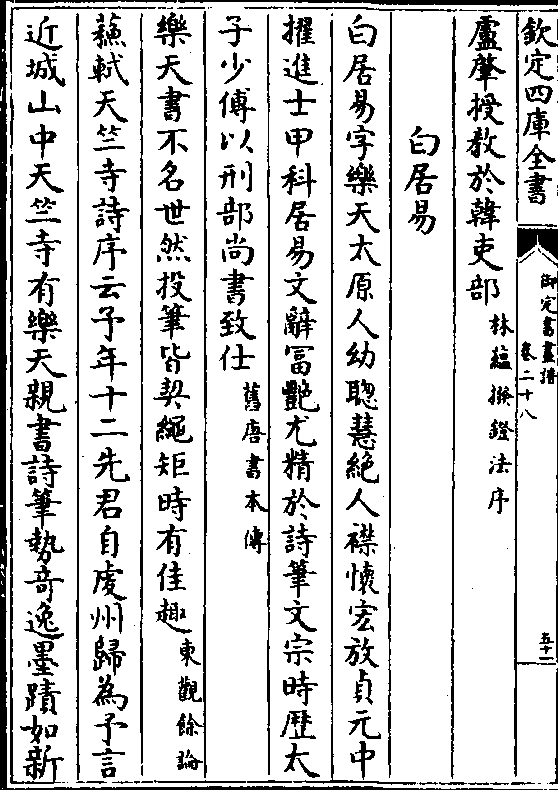 欽定四庫全書
御定書畫譜
卷二十八
五十一
盧肇授教於韓吏部林藴撥鐙法序
白居易
白居易字樂天太原人幼聰慧絶人襟懷宏放貞元中
擢進士甲科居易文辭富艷尤精於詩筆文宗時歴太
子少傅以刑部尚書致仕舊唐書本傳
樂天書不名世然投筆皆契繩矩時有佳趣東觀餘論
蘓軾天竺寺詩序云予年十二先君自䖍州歸為予言
近城山中天竺寺有樂天親書詩筆勢竒逸墨蹟如新